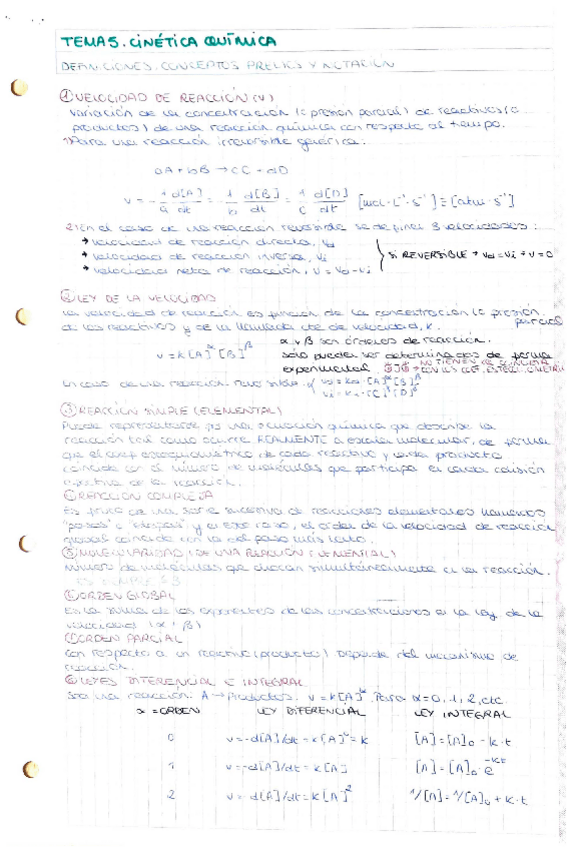 TEMA 5. CINÉTICA QUÍMICA
DEFINICIONES, CONCEPTOS PREVIOS Y NOTACIÓN
① VELOCIDAD DE REACCIÓN (v)
Variación de la concentración (o presión parcial) de reactivos (o
productos) de una reacción química con respecto al tiempo.
1) Para una reacción irreversible genérica:
aA + bB → cC + dD
v = - 1/a d[A]/dt = - 1/b d[B]/dt = 1/c d[D]/dt [mol·L⁻¹·s⁻¹] = [atm·s⁻¹]
2) En el caso de una reacción reversible se definen 3 velocidades:
→ velocidad de reacción directa, vd
→ velocidad de reacción inversa, vi
→ velocidad neta de reacción, v = vd - vi
} si REVERSIBLE → vd = vi → v = 0
② LEY DE LA VELOCIDAD
La velocidad de reacción es función de la concentración (o presión
parcial
de los reactivos y de la llamada cte de velocidad, k.
α y β son órdenes de reacción.
v = k[A]^α [B]^β
sólo pueden ser determinados de forma
experimental. OJO → NO TIENEN QUE COINCIDIR
CON LOS COEF. ESTEQUIOMÉTRICOS
En caso de una reacción reversible:
③ REACCIÓN SIMPLE (ELEMENTAL)
Puede representarse por una ecuación química que describe la
reacción tal como ocurre REALMENTE a escala molecular, de forma
que el coef estequiométrico de cada reactivo y cada producto
coincide con el número de moléculas que participa en cada colisión
efectiva de la reacción.
REACCIÓN COMPLEJA
Es fruto de una serie sucesiva de reacciones elementales llamados
"pasos" o "etapas" y en este caso, el orden de la velocidad de reacción
global coincide con la del paso más lento.
⑤ MOLECULARIDAD (DE UNA REACCIÓN ELEMENTAL)
Número de moléculas que chocan simultáneamente en la reacción.
ES SIEMPRE ≤ 3
ORDEN GLOBAL
Es la suma de los exponentes de las concentraciones en la ley de la
velocidad (α + β)
ORDEN PARCIAL
Con respecto a un reactivo (producto). Depende del mecanismo de
reacción.
LEYES DIFERENCIAL E INTEGRAL
Sea una reacción: A → Productos. v = k[A]^α. Para α = 0, 1, 2, etc.
α = ORDEN LEY DIFERENCIAL LEY INTEGRAL
0 v = -d[A]/dt = k[A]^0 = k [A] = [A]₀ - k·t
1 v = -d[A]/dt = k[A] [A] = [A]₀ · e^-kt
2 v = -d[A]/dt = k[A]² 1/[A] = 1/[A]₀ + k·t